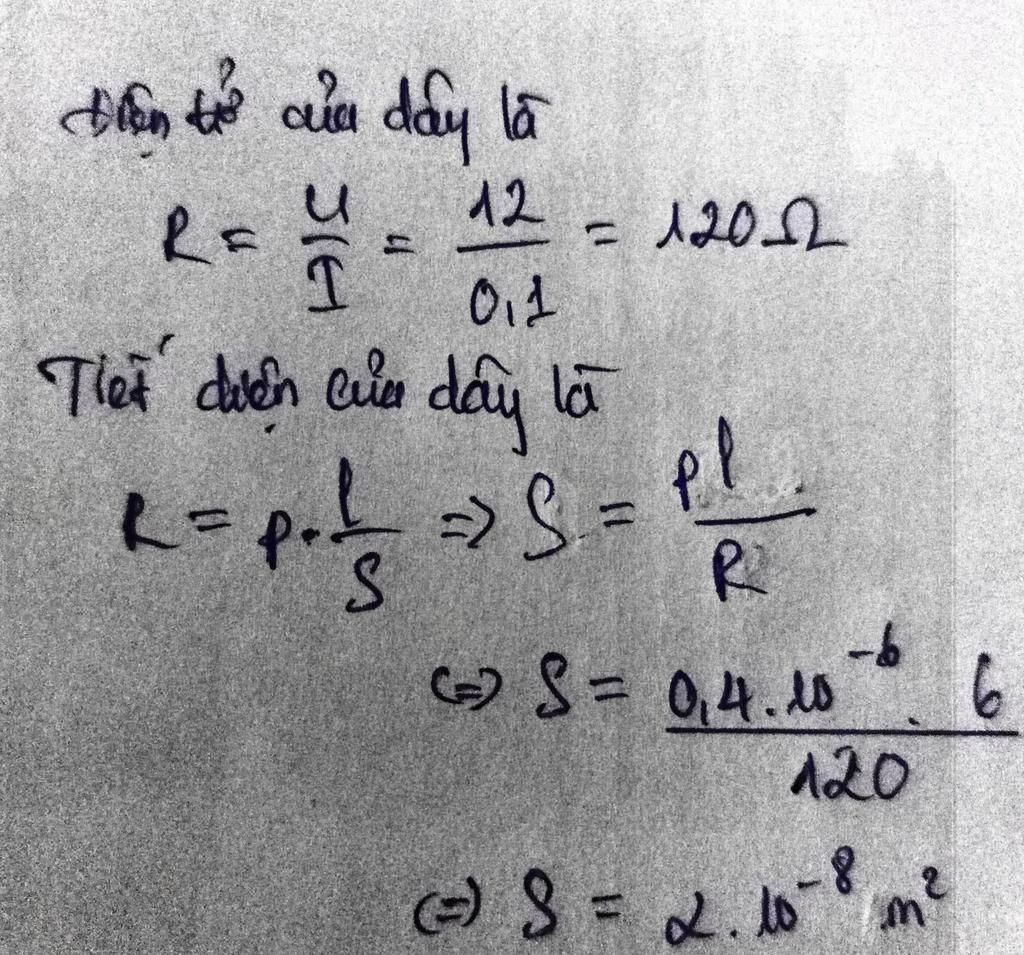 điện trở của dây là
R = U/I = 12/0,1 = 120 Ω
Tiết diện của dây là
R = ρ. l/S => S = ρl/R
<=> S = 0,4.10⁻⁶. 6/120
<=> S = 2.10⁻⁸ m²